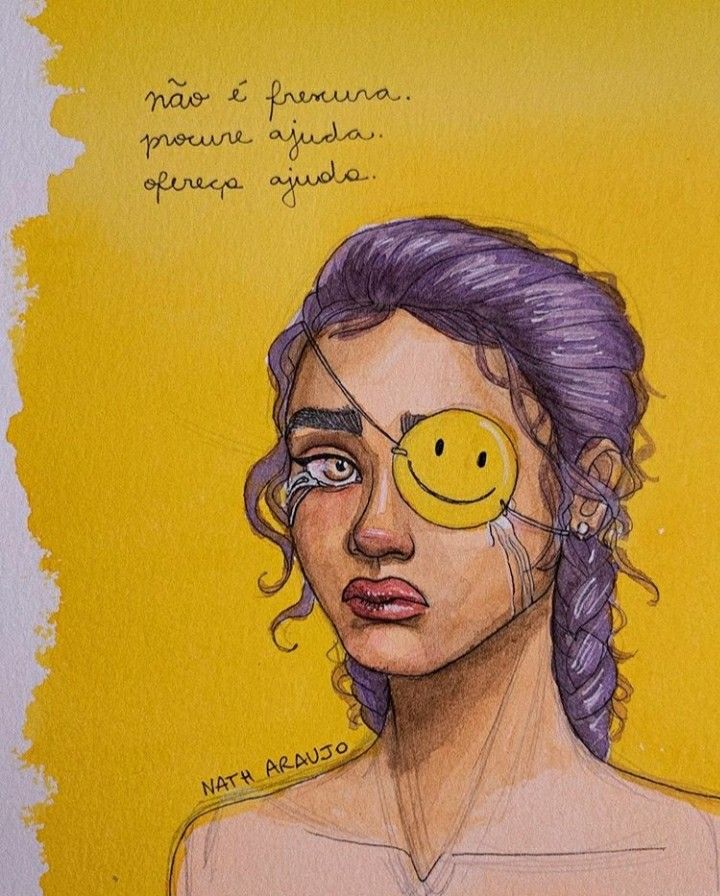 não é frescura.
procure ajuda.
ofereça ajuda.
NATH ARAUJO